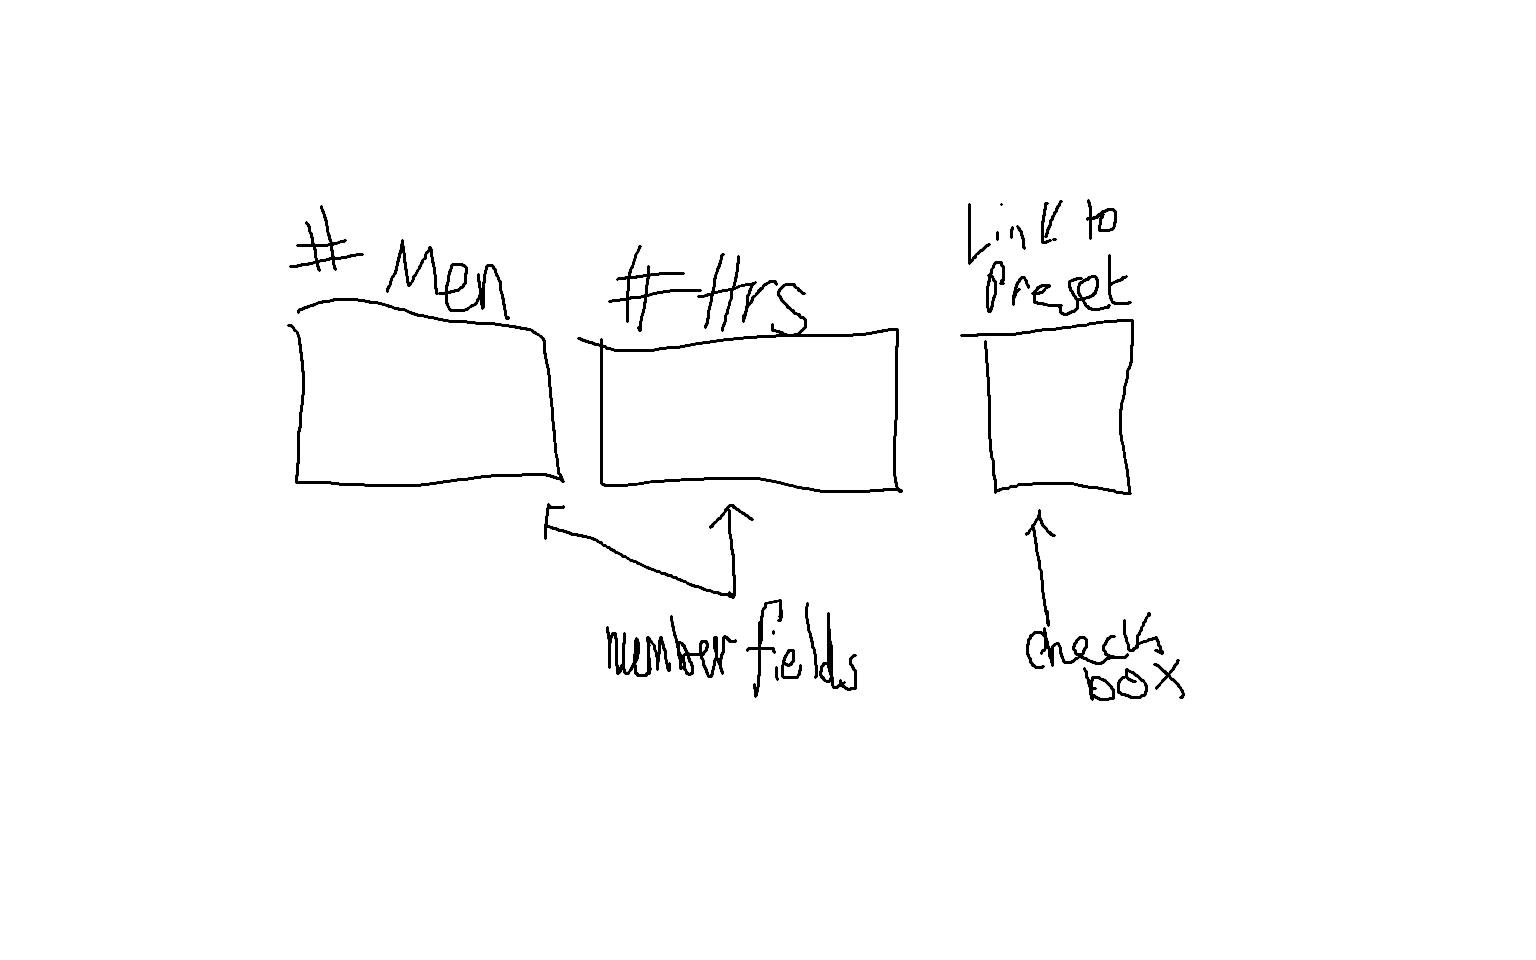 # Men
# Hrs
Link to
Preset
number fields
check
box